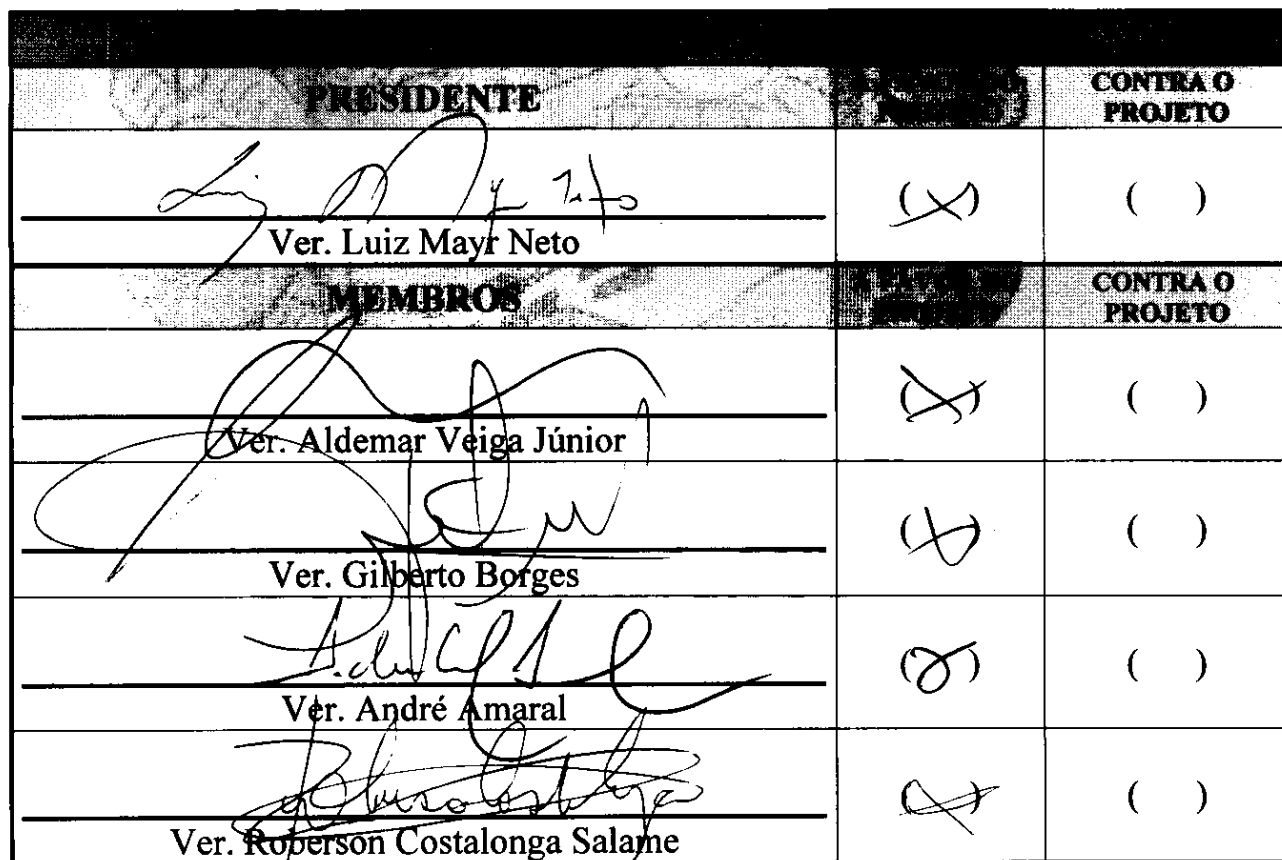 PRESIDENTE
CONTRA O
PROJETO
Luiz Mayr Neto
(X) ( )
Ver. Luiz Mayr Neto
MEMBROS
A FAVOR DO
CONTRA O
PROJETO
(X) ( )
Ver. Aldemar Veiga Júnior
(X) ( )
Ver. Gilberto Borges
(X) ( )
Ver. André Amaral
(X) ( )
Ver. Roberson Costalonga Salame